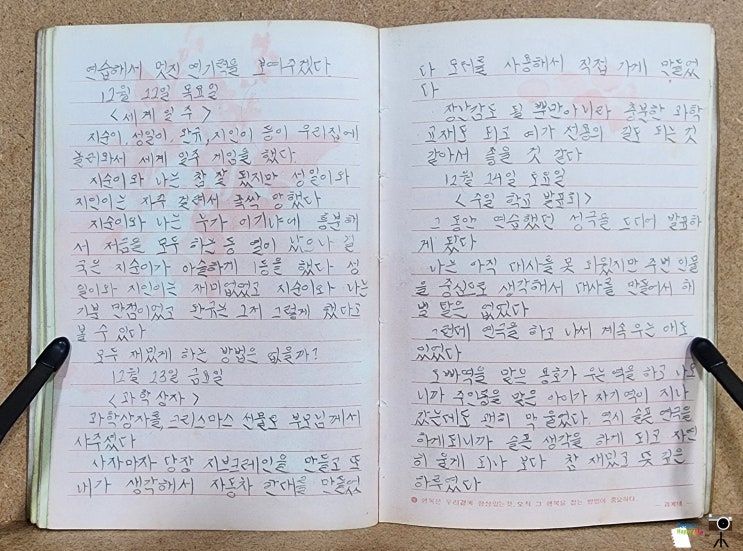 연습해서 멋진 연기력을 보여주겠다
12월 22일 목요일
<세계 일주>
지순이, 성일이, 완규, 지인이 등이 우리집에
놀러와서 세계 일주 게임을 했다
지순이와 나는 참 잘 됐지만 성일이와
지인이는 자주 걸려서 쫄싹 망했다
지순이와 나는 누가 이기냐에 흥분해
서 저금을 모두 하는 등 열이 났으나 결
국은 지순이가 아슬하게 1등을 했다 성
일이와 지인이는 재미없었고 지순이와 나는
기분 만점이었고 완규는 그저 그렇게 했다고
볼 수 있다
모두 재밌게 하는 방법은 없을까?
12월 23일 금요일
<과학상자>
과학상자를 크리스마스 선물로 부모님께서
사주셨다
사자마자 당장 지브크레인을 만들고 또
내가 생각해서 자동차 한대를 만들었
다 모터를 사용해서 직접 가게 만들었
다
장난감도 될 뿐만아니라 충분한 과학
교재도 되고 여가 선용의 길도 되는 것
같아서 좋을 것 같다
12월 24일 토요일
<주일 학교 발표회>
그 동안 연습했던 성극을 드디어 발표하
게 됐다
나는 아직 대사를 못 외웠지만 주변 인물
을 중심으로 생각해서 대사를 만들어서 해
별 탈은 없었다
그런데 연극을 하고 나서 계속 우는 애도
있었다
오빠역을 맡은 용호가 우는 역을 하고 나오
니까 주인공을 맡은 아이가 자기 역이 지나
갔는데도 괜히 막 울었다. 역시 슬픈 연극을
하게되니까 슬픈 생각을 하게 되고 자연
히 울게 되나 보다 참 재밌고 뜻 깊은
하루였다
행복은 우리곁에 항상있는것 오직 그 행복을 잡는 방법이 중요하다
— 괴에테 —